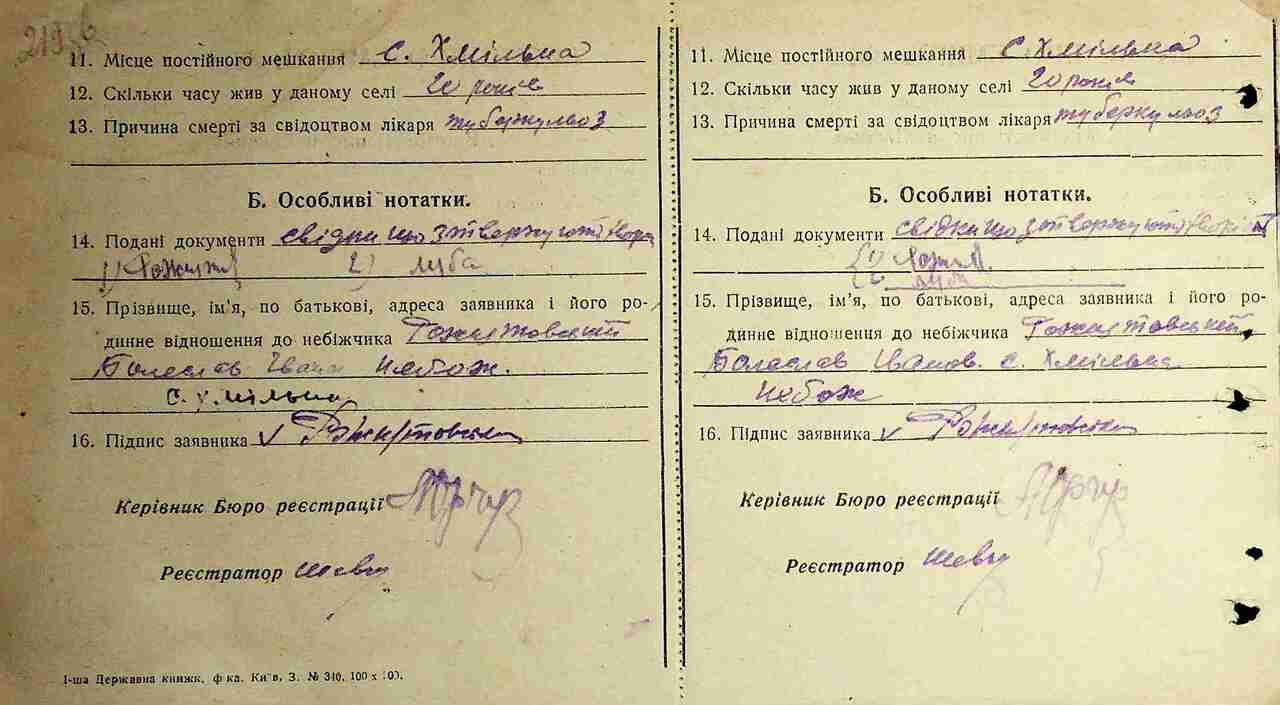 219
11. Місце постійного мешкання с. Хмільна
12. Скільки часу жив у даному селі 20 років
13. Причина смерті за свідоцтвом лікаря туберкульоз
Б. Особливі нотатки.
14. Подані документи свідки що затверджують
1) 2) Луба
15. Прізвище, ім'я, по батькові, адреса заявника і його ро-
динне відношення до небіжчика
Болеслав Івана небож.
с. Хмільна
16. Підпис заявника v
Керівник Бюро реєстрації
Реєстратор
1-ша Державна книжк. ф-ка. Київ, З. № 340, 100 х 100.
11. Місце постійного мешкання с. Хмільна
12. Скільки часу жив у даному селі 20 років
13. Причина смерті за свідоцтвом лікаря туберкульоз
Б. Особливі нотатки.
14. Подані документи свідки що затверджують
1)
2 Луба
15. Прізвище, ім'я, по батькові, адреса заявника і його ро-
динне відношення до небіжчика
Болеслав Іванов. с. Хмільна
небож
16. Підпис заявника v
Керівник Бюро реєстрації
Реєстратор